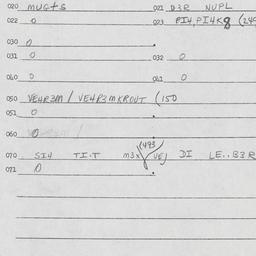 020 MUGtS 021 D3R NUPL
022 0 023 PI4, PI4K8 (249
030 0
031 0 032 0
040 0 041 0
050 VE4R3M / VE4R3MKROUT (150
051 0
060 0
(493
070 SI4 TI.T M3X VEJ DI LE..B3R
071 0